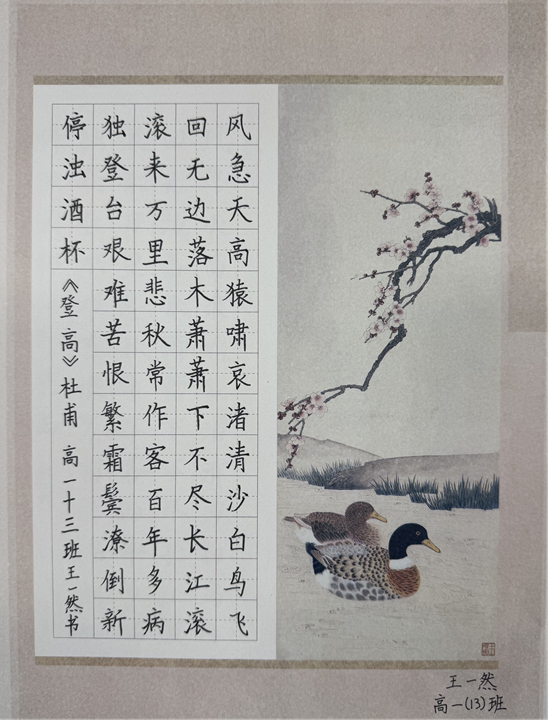 风急天高猿啸哀渚清沙白鸟飞
回无边落木萧萧下不尽长江滚
滚来万里悲秋常作客百年多病
独登台艰难苦恨繁霜鬓潦倒新
停浊酒杯《登高》杜甫 高一十三班王一然书
王一然
高一(13)班